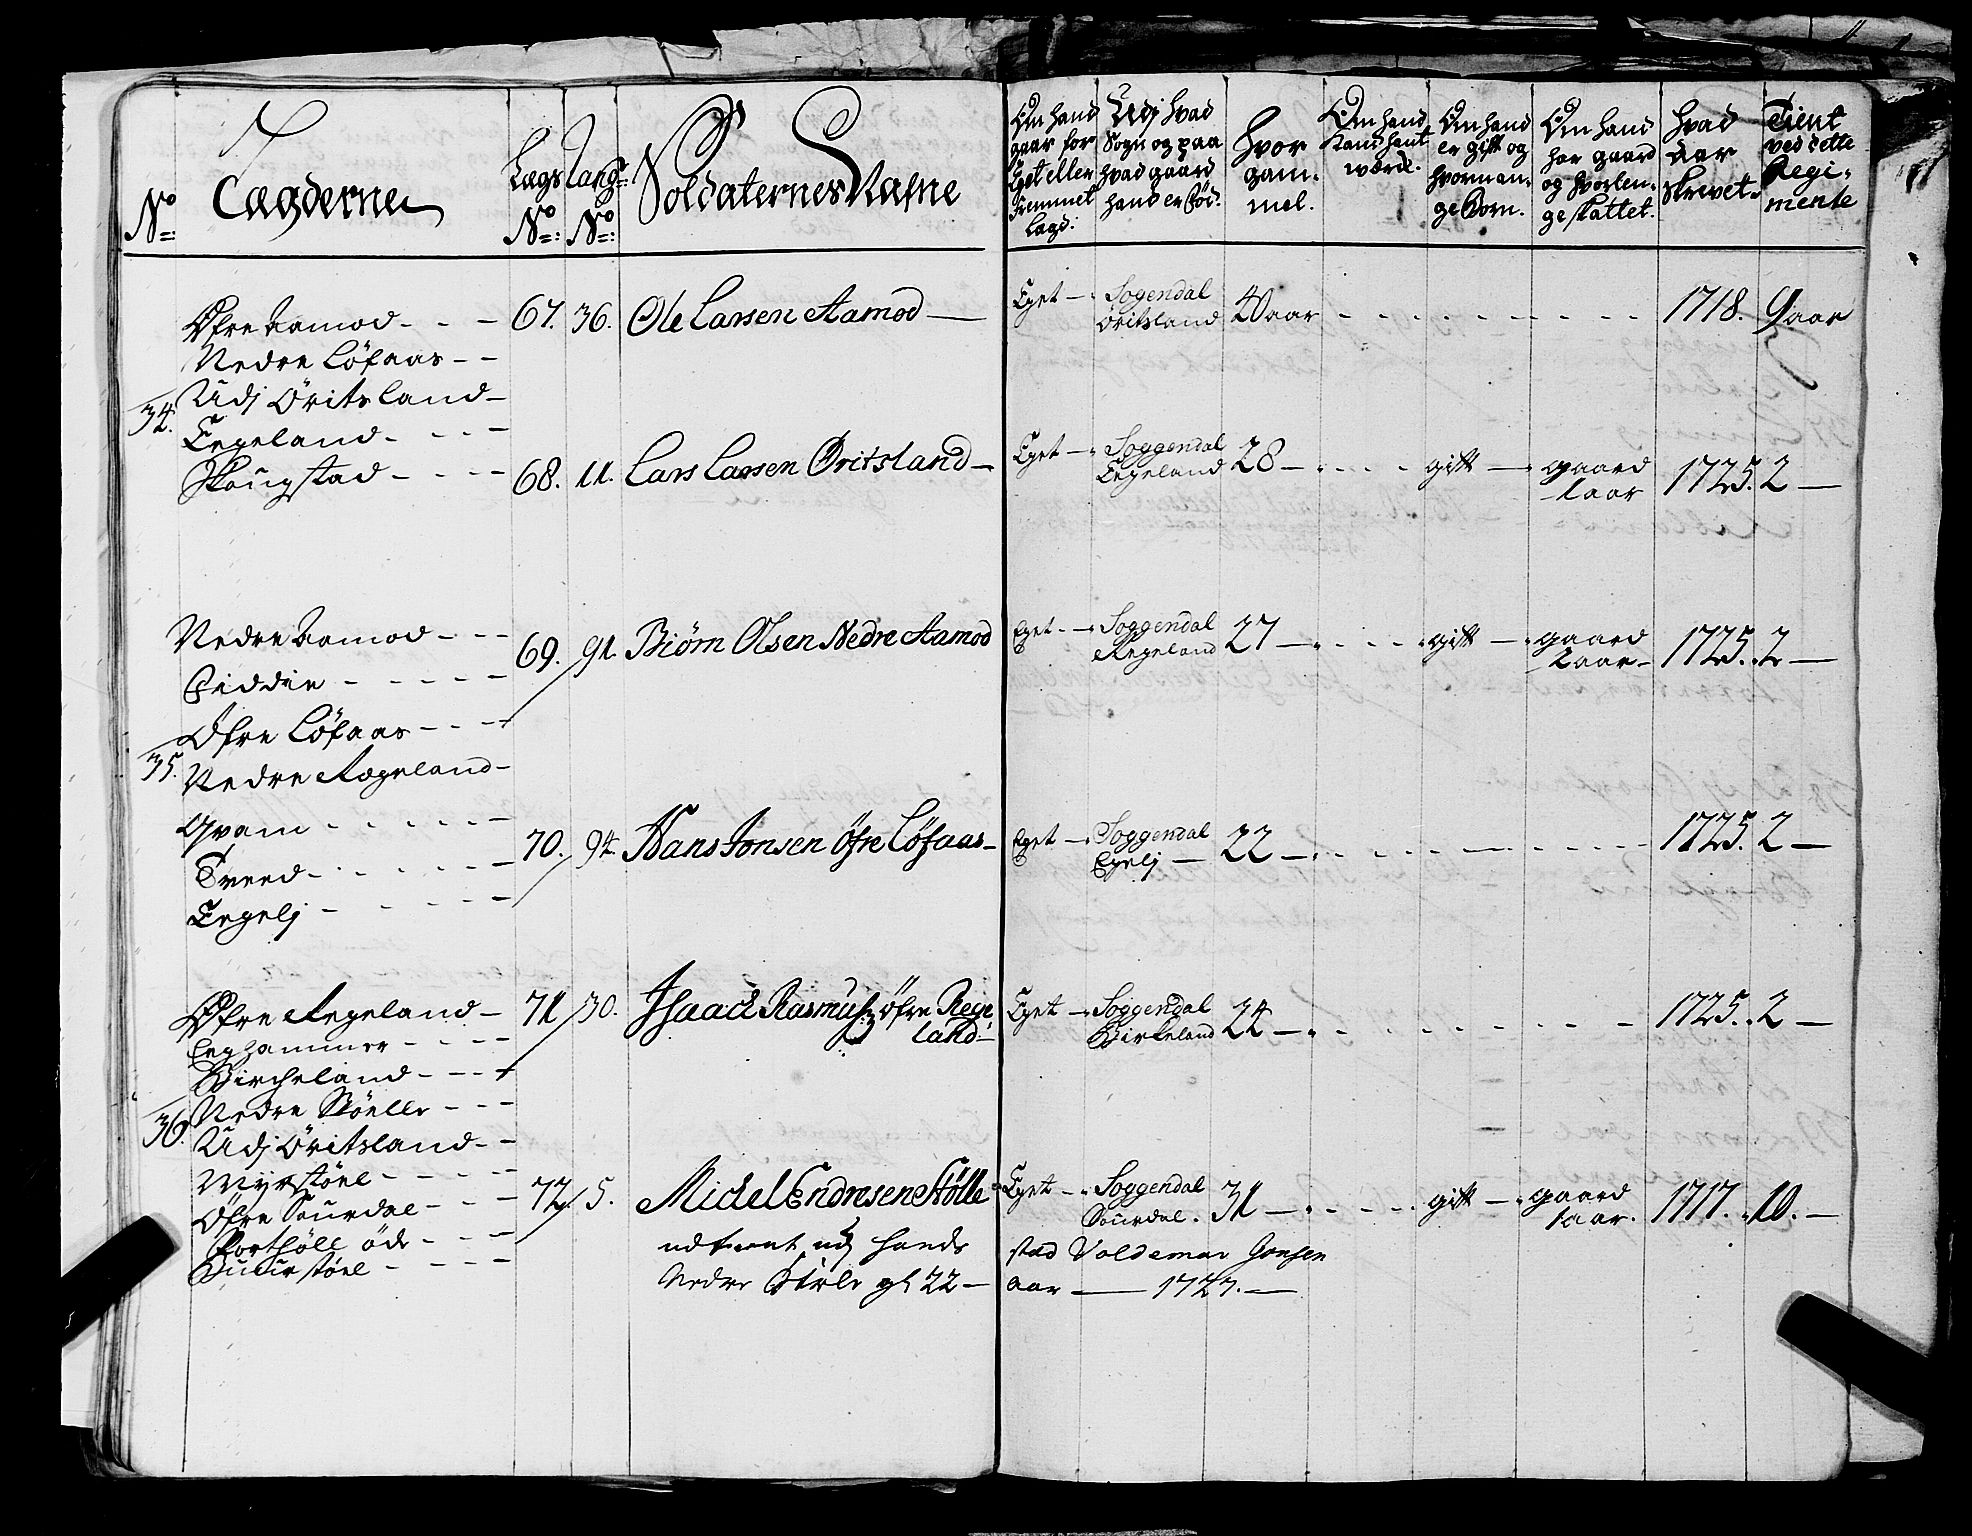 No: Lægderne Lægs No: Rang No: Soldaternes Nafne
Om hand gaar for Eget eller fremmet Lægd.
Udj hvad Sogn og paa hvad gaard hand er fød.
Hvor gammel.
Om hand kand haandt werck.
Om hand er gift og hvormange Børn.
Om hand har gaard og hvorlenge skattet.
Hvad aar skrevet.
Tient ved dette Regimente
34.
Øfre Aamod - - -
Nedre Løfaas - -
Udj Øritsland -
Eegeland - - - -
Skougstad - - - -
67. 36. Ole Larsen Aamod — Eget — Sogendal Øritsland 40 aar 1718. 9 aar
68. 11. Lars Larsen Øritsland — Eget — Soggendal Eegeland 28 — gift — gaard 1 aar 1725. 2 —
35.
Nedre Aamod - - -
Øfre Løfaas - - -
Nedre Rægeland -
Qvam - - - - -
Tveed - - - - -
Eegelj - - - - -
69. 91. Biørn Olsen Nedre Aamod Eget - Soggendal Regeland 27 — gift — gaard 2 aar - 1725. 2 —
70. 94. Hans Jonsen Øfre Løfaas - Eget — Soggendal Egelj — 22 — 1725. 2 —
36.
Øfre Regeland -
Eeghammer - - - -
Bircheland - - -
Nedre Stølle - - -
Udj Øritsland - -
Myrstøel - - - -
Øfre Sourdal - - -
71 30. Isaack Rasmusz øfre Regeland - Eget — Soggendal Birkeland 22 — 1725. 2 —
72. 5. Michel Endresen Stølle Eget — Soggendal Sourdal. 31 — gift — gaard 1 aar. 1717. 10. —
udj hands stad Voldemar Jonsen
Nedre gl 22 — aar — 1727. —